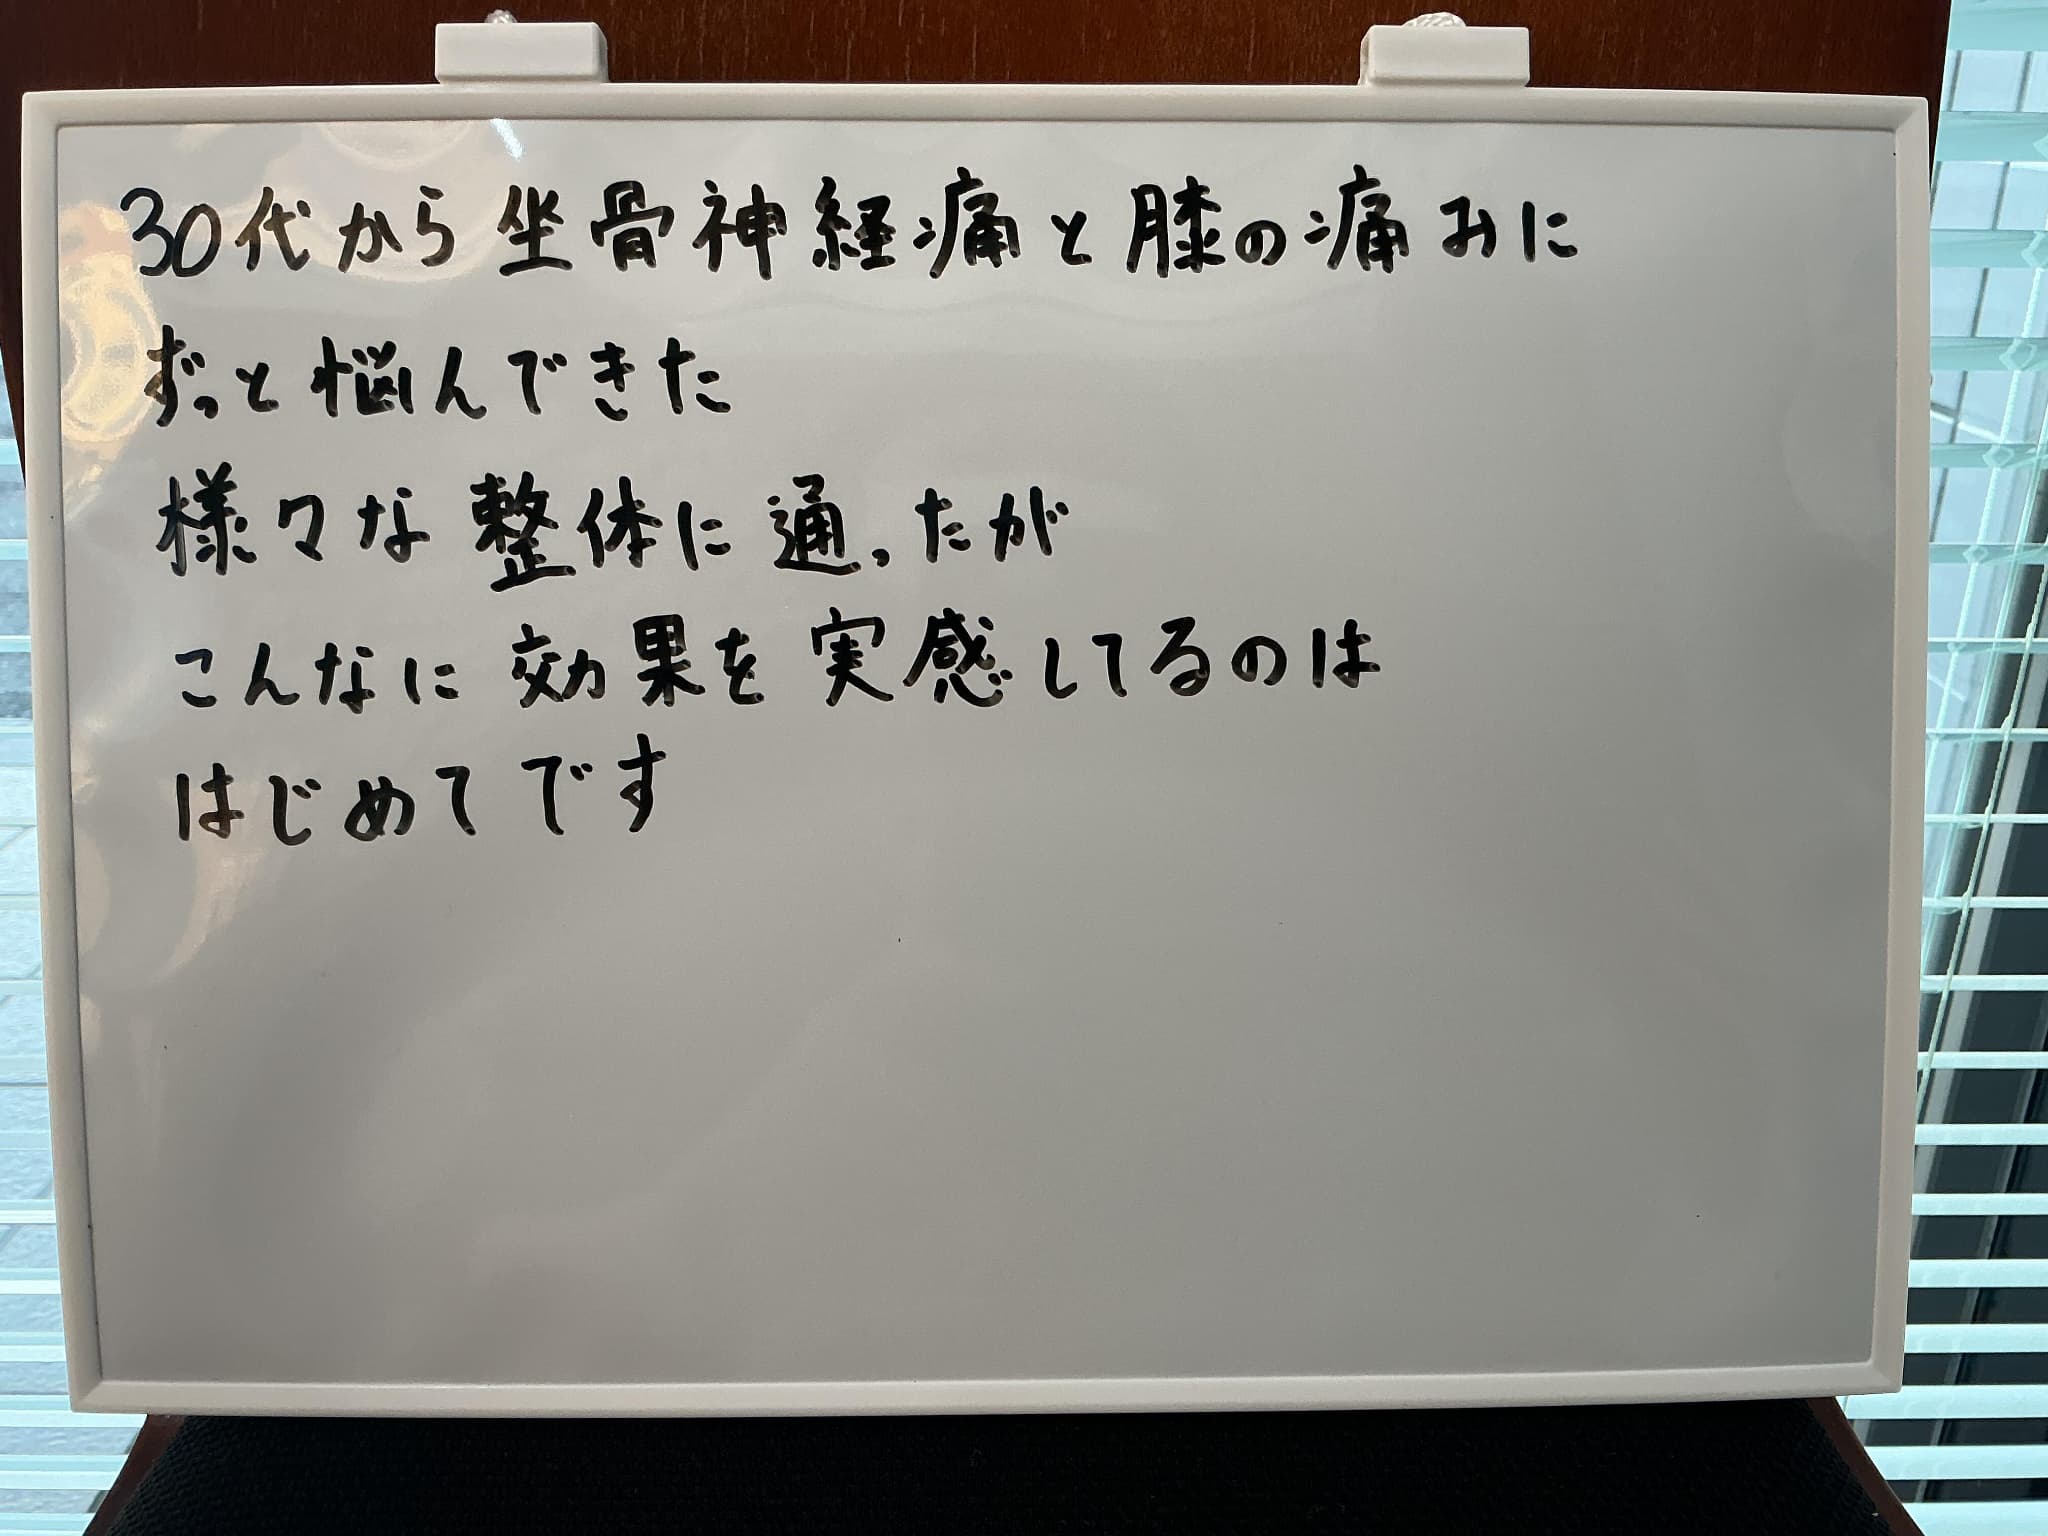 30代から坐骨神経痛と膝の痛みに
ずっと悩んできた
様々な整体に通ったが
こんなに効果を実感してるのは
はじめてです